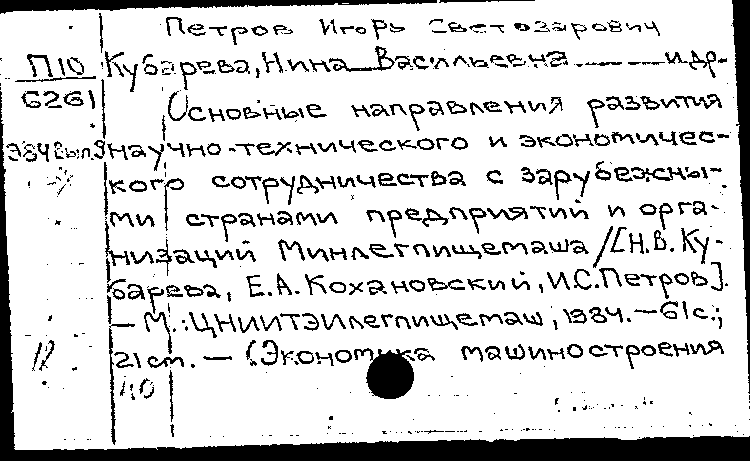 Петров Игорь Светозарович
П10 Кубарева, Нина Васильевна и др.
6261 Основные направления развития
984 вып.9 научно-технического и экономичес-
кого сотрудничества с зарубежны-
ми странами предприятий и орга-
низаций Минлегпищемаша / [Н.В. Ку-
барева, Е.А. Кохановский, И.С. Петров].
— М.: ЦНИИТЭИлегпищемаш, 1984. — 61 с.;
12 21 см. — (Экономика машиностроения